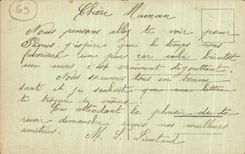 69
Chère Maman
Nous pensons allez te voir pour
Pâques j'espère que le temps nous
favorisera un peu car voilà bientôt
un mois c'est vraiment dégouttant.
Nous sommes tous en bonne
santé et je souhaite que ma lettre
te trouve de même
En attendant le plaisir de te
revoir dimanche nos meilleurs
amitiés
M. L.